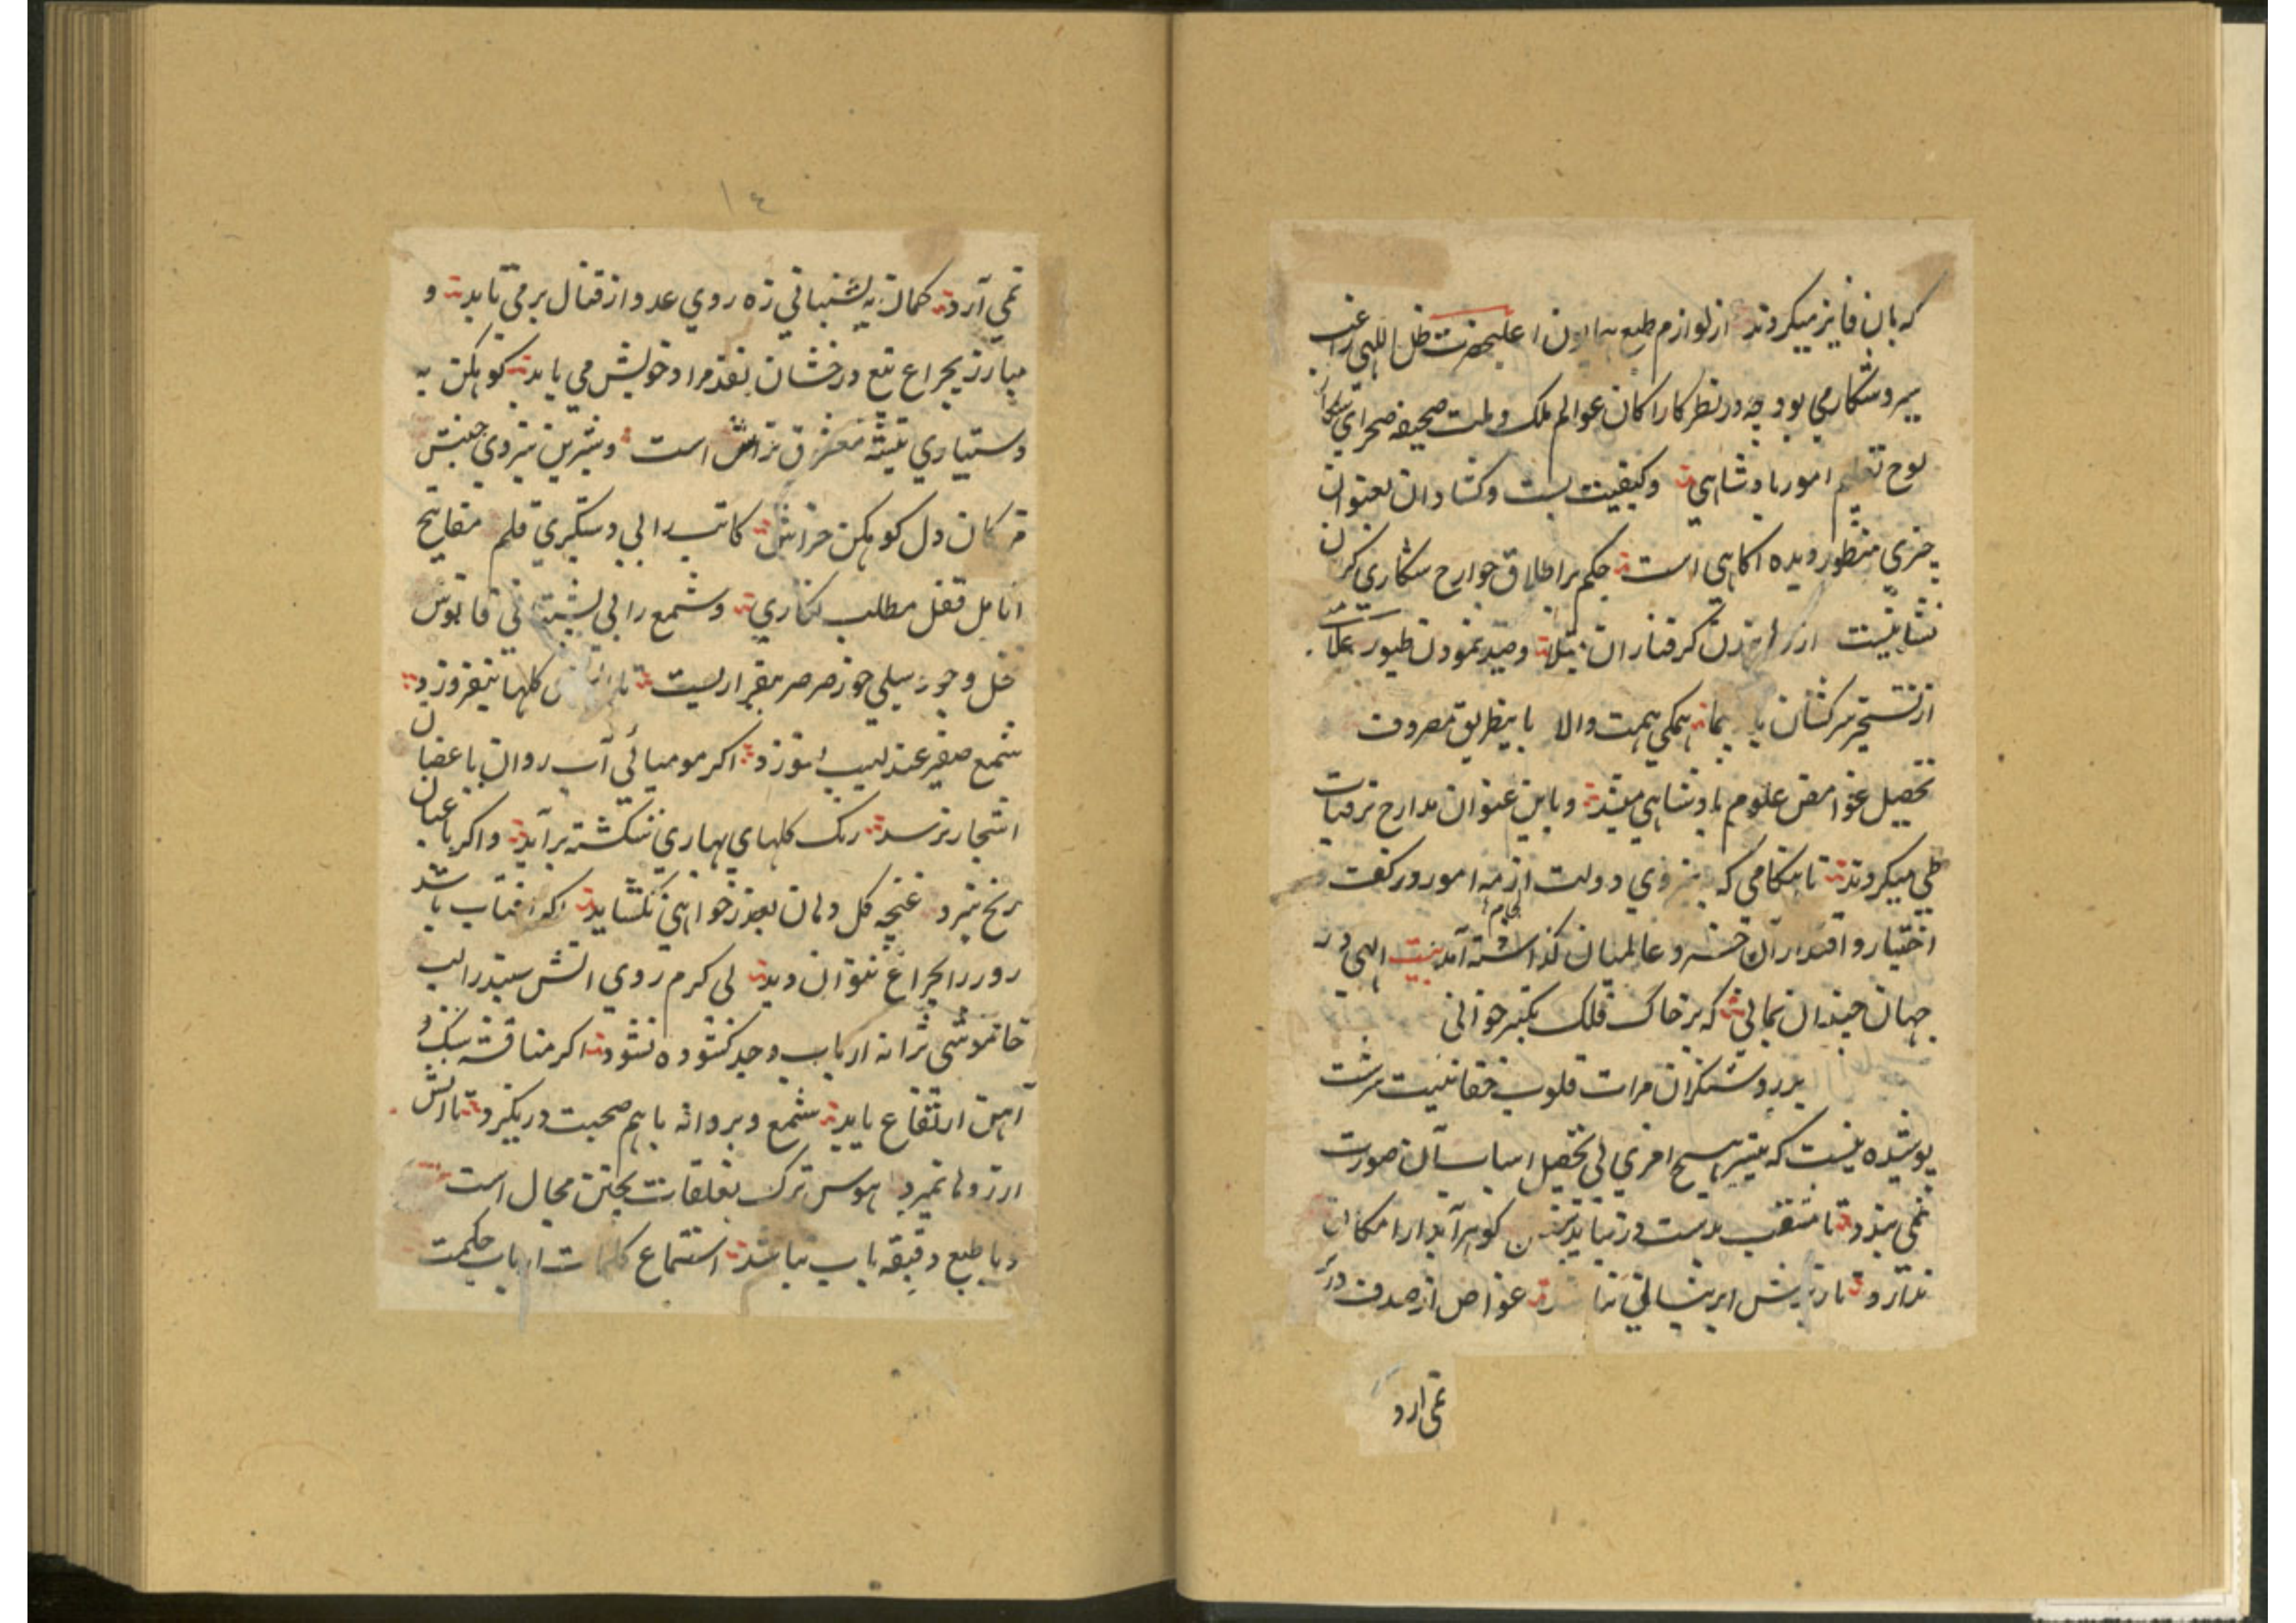 که بان فایز میکردند از لوازم طبع همایون اعلیحضرت ظل اللهی راغب
سیر و شکار می بود چه در نظر کارآکان عوالم ملک و ملت صحیفه صحرای
لوح تعلیم امور بادشاهی و کیفیت بست و کشاد ان بعنوان
چیزی منظور دیده اکاهی است حکم بر اطلاق جوارح شکاری کردن
نشانیست از کرفتاران بتلا و صید نمودن طیور
از تسخیر سرکشان همکی همت والا باینطریق مصروف
تحصیل غوامض علوم بادشاهی میشد و باین عنوان مدارج ترقیات
طی میکردند تا هنکامی که به نیروی دولت ازمه امور در کف
اختیار و اقتدار آن خسرو عالمیان کذاشته آمد بیت الهی در
جهان چندان بمانی که بر خاک فلک تکبیر خوانی
بر روشنکران مرات قلوب حقانیت سرشت
پوشیده نیست که هیچ امری بی تحصیل اسباب آن صورت
نمی بندد تا مثقب بدست در نیاید سفتن کوهر آبدار امکان
ندارد تا ریزش ابر نیسانی نباشد غواص از صدف در
نمی ارد
١٤
نمی آرد کمان به پشتبانی زه روی عدو از قتال بر می تابد و
مبارز بچراغ تیغ درخشان نقد مراد خویش می یابد کوهکن به
دستیاری تیشه معشوق تراش است و شیرین نیروی جنبش
مژکان دل کوهکن خراش کاتب را بی دستکیری قلم مفاتیح
انامل قفل مطلب نکاری و شمع را بی پشتبانی فانوس
سیلی خور صرصر بیقراریست تا کلها نیفروزد
شمع صفیر عندلیب نسوزد اکر مومیائی آب روان باعضای
اشجار نرسد رنک کلهای بهاری شکسته برآید و اکر باغبان
رنج نبرد غنچه کل دهان بعذر خواهی نکشاید اکر افتاب باشد
روز را بچراغ نتوان دید بی کرم روی اتش سپند را لب
خاموشی ترانه ارباب وجد کشوده نشود اکر مناقشه سنک و
آهن ارتفاع یابد شمع و پروانه باهم صحبت در نکیرد تا اتش
ارزوها نمیرد هوس ترک تعلقات پختن محال است
و با طبع دقیقه یاب نباشد استماع کلمات ارباب حکمت